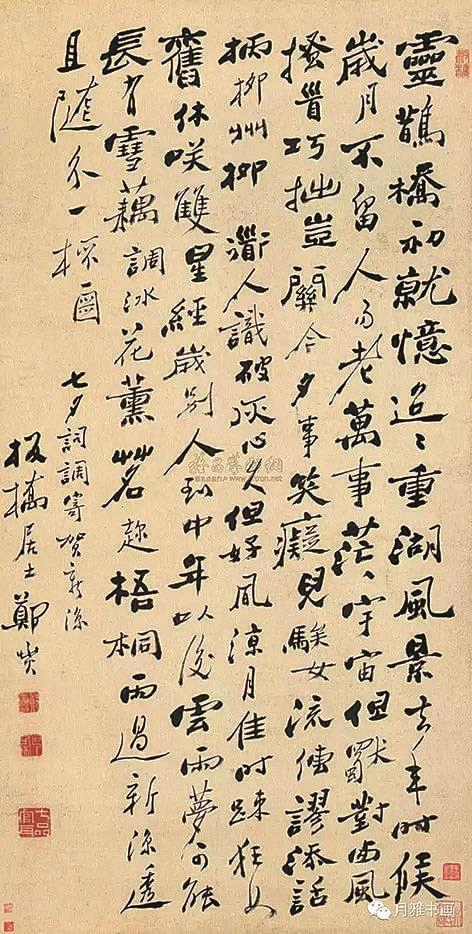 靈鵲橋初就憶迢〻重湖風景去年時候
歲月不留人易老萬事茫〻宇宙但獨對西風
搔首巧拙豈關今夕事笑癡兒騃女流傳謬添話
柄柳州柳 道人識破灰心久但好風涼月佳時疎狂如
舊休咲雙星經歲別人到中年以後雲雨夢可能
長有雪藕調冰花薰茗趂梧桐雨過新涼透
且隨分一杯酒
七夕詞調寄賀新涼
板橋居士鄭燮
七品官耳
月雅书画